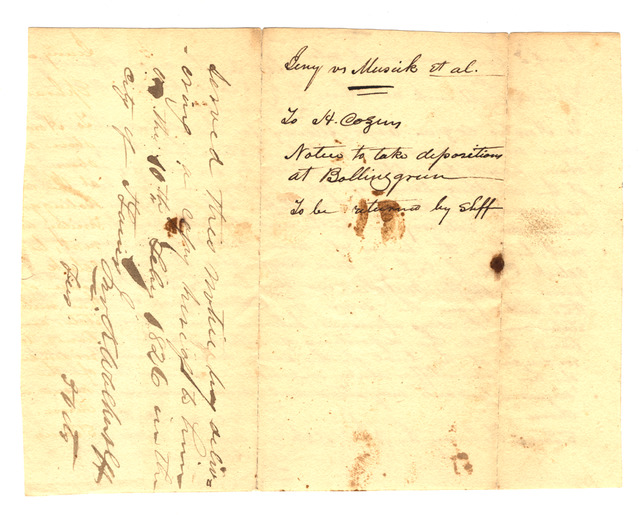 Jeny vs Musick et al.
To H. Cozens
Notice to take depositions
at Bollinggreen
To be returned by Shff
Served this notice by deliv=
=ering a copy hereof to him
on the 10th July 1826 in the
City of St Louis
Ro. N. Walker Shff
Fees